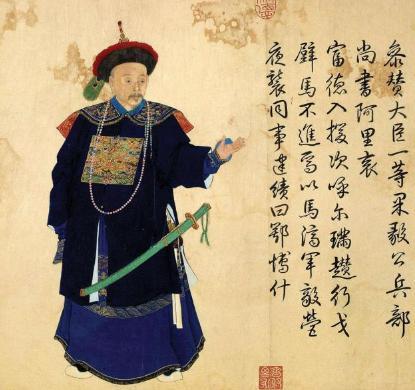 叅贊大臣一等果毅公兵部
尚書阿里袞
富德入援次呼尔璊趲行戈
壁馬不進焉以馬濟軍營
夜襲同事建績曰鄂博什